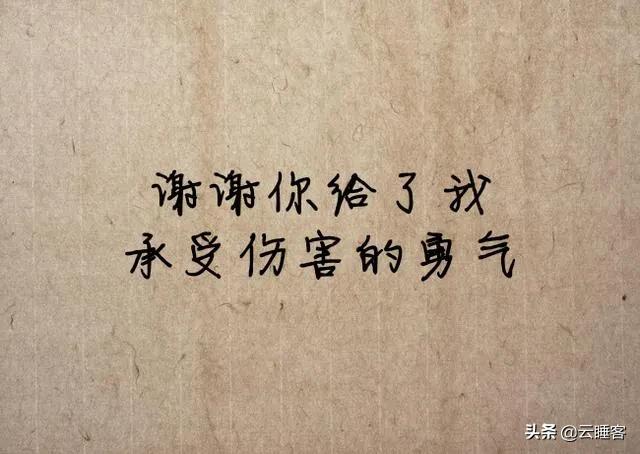 谢谢你给了我
承受伤害的勇气
头条 @云睡客